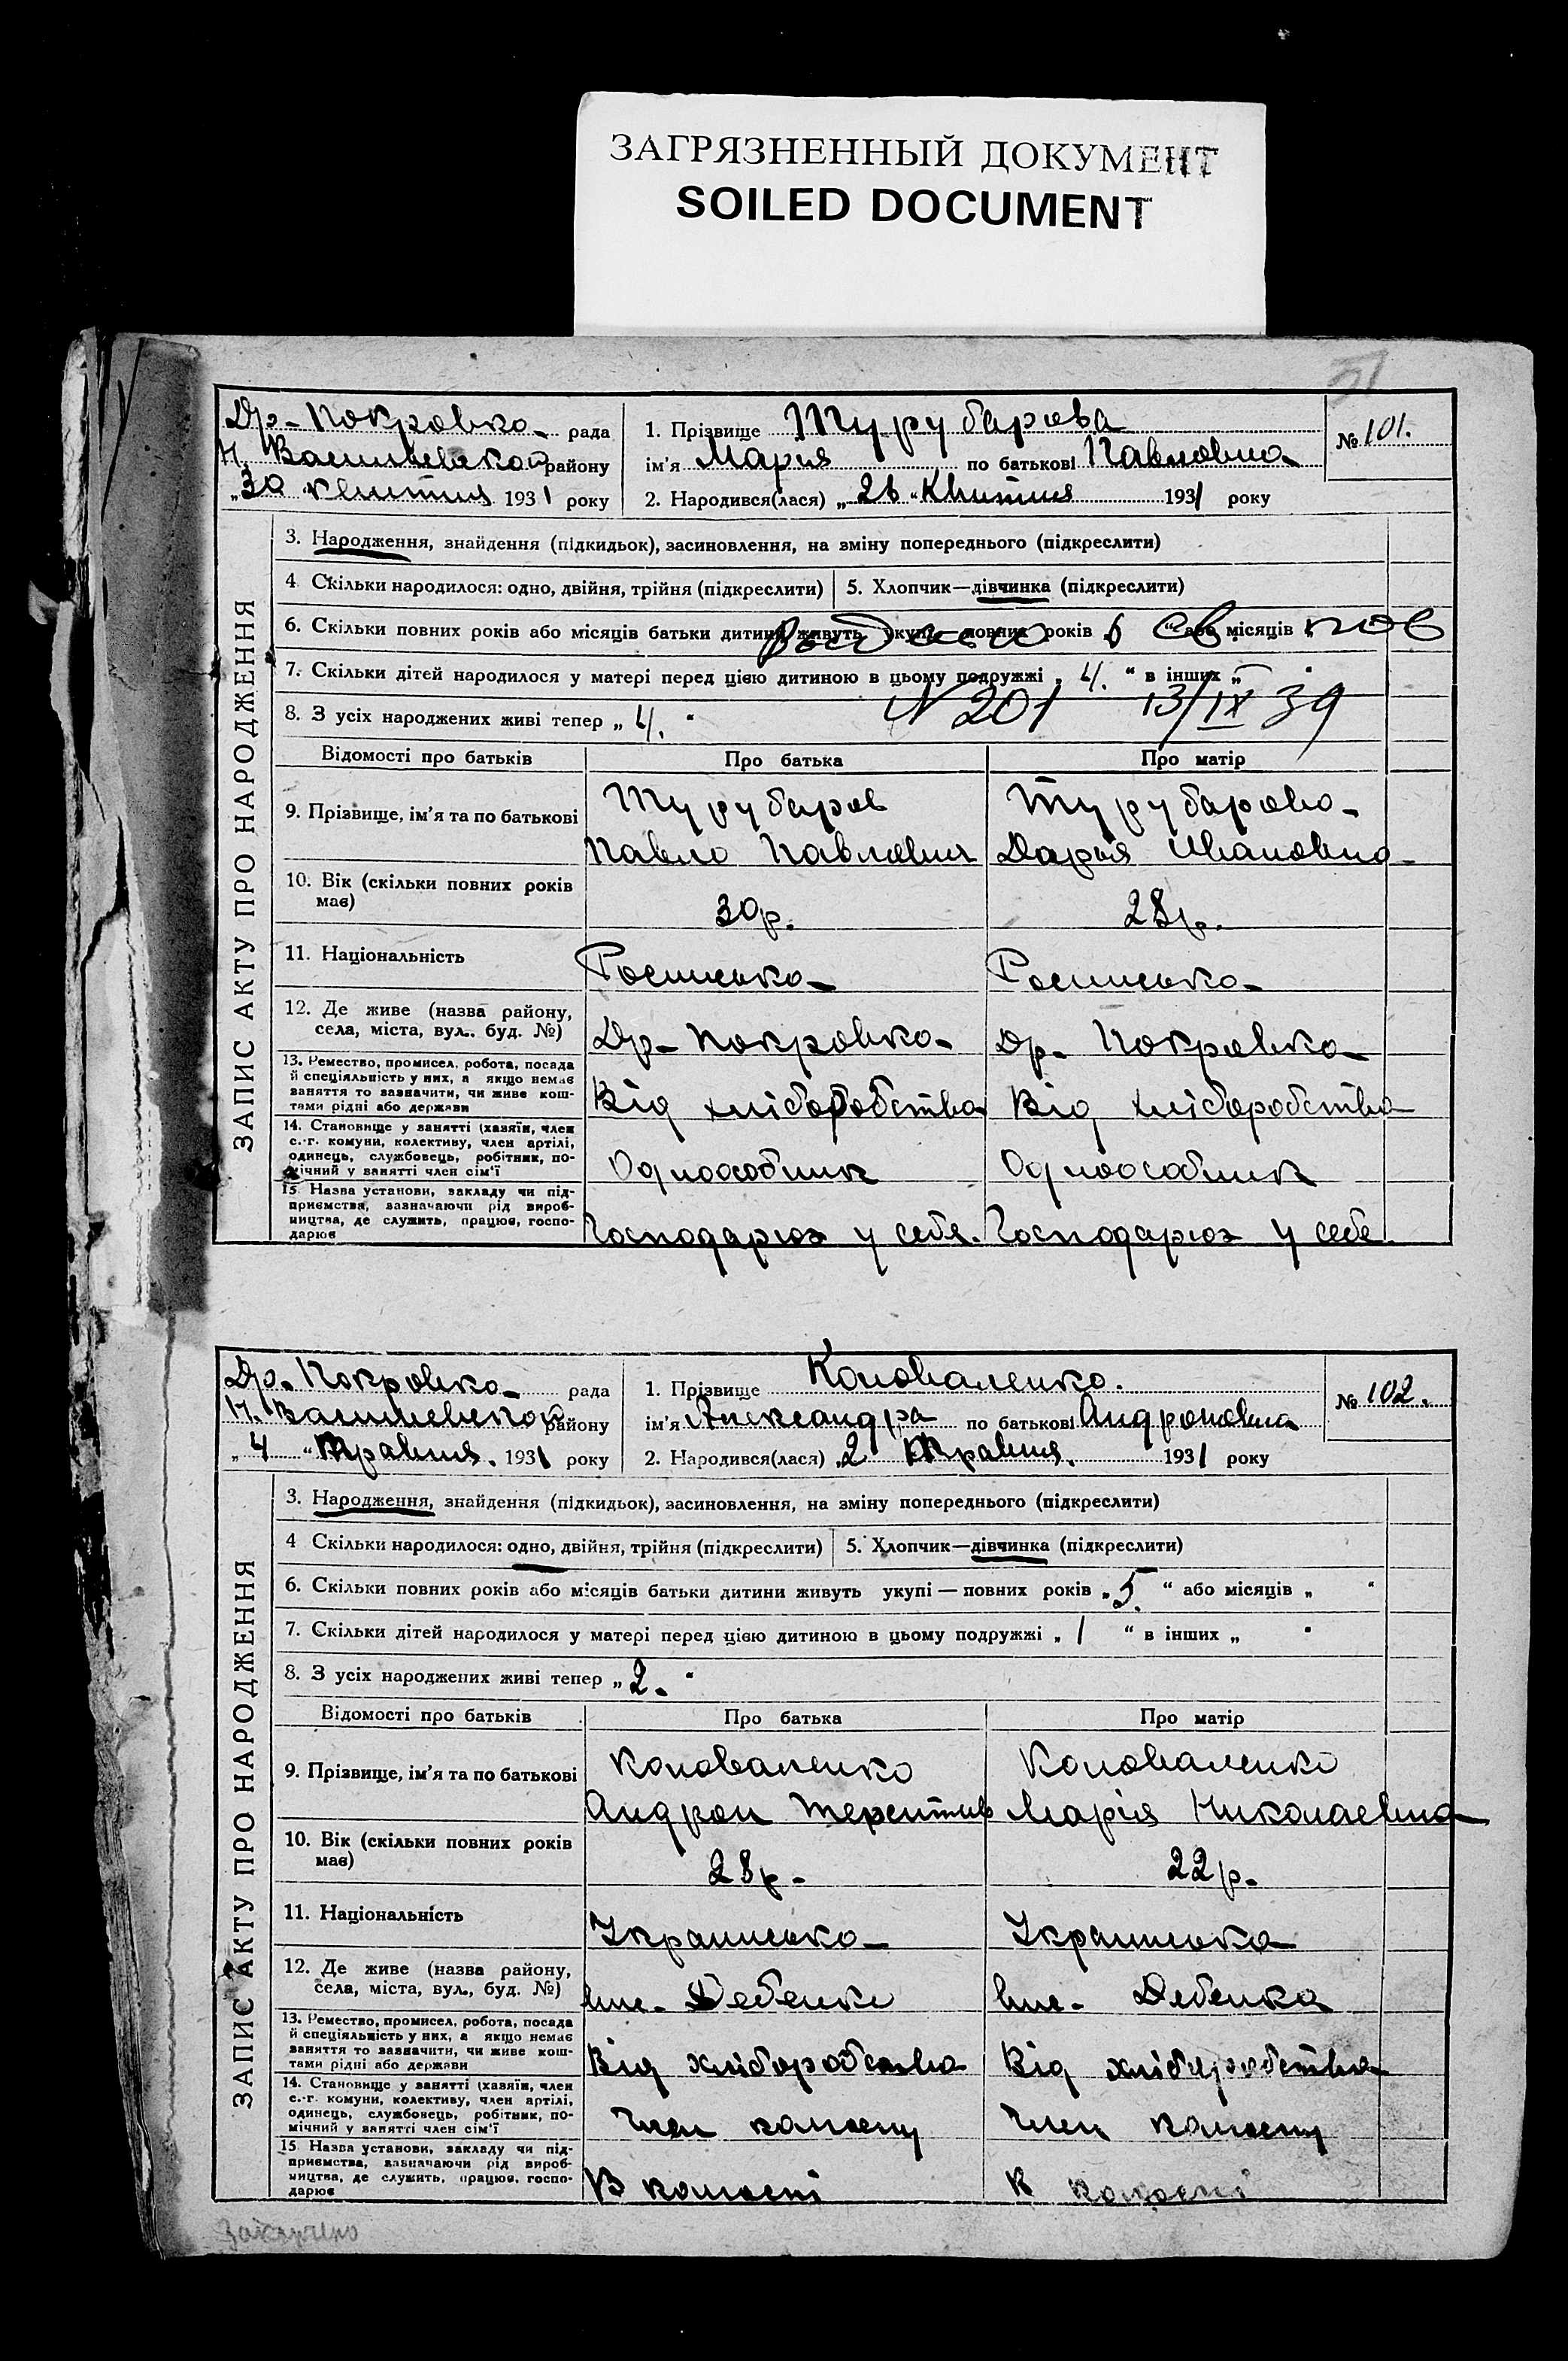 ЗАГРЯЗНЕННЫЙ ДОКУМЕНТ
SOILED DOCUMENT
Др-Покровка рада
Н. Василівской району
„30 квітня 1931 року
1. Прізвище Турубарова
ім'я Мария по батькові Павловна
2. Народився(лася) „26 “ Квитня 1931 року
№ 101.
ЗАПИС АКТУ ПРО НАРОДЖЕННЯ
3. Народження, знайдення (підкидьок), засиновлення, на зміну попереднього (підкреслити)
4 Скільки народилося: одно, двійня, трійня (підкреслити) 5. Хлопчик—дівчинка (підкреслити)
6. Скільки повних років або місяців батьки дитини живуть укупі — повних років або місяців
Выдано св. пов
7. Скільки дітей народилося у матері перед цією дитиною в цьому подружжі „ 4. “ в інших „ — “
8. З усіх народжених живі тепер „ 4. “
N 201 13/IX 39
Відомості про батьків Про батька Про матір
9. Прізвище, ім'я та по батькові
Турубаров Турубарова
Павло Павлович Дарья Ивановна
10. Вік (скільки повних років має) 30р. 28р.
11. Національність Росииська Росииська
12. Де живе (назва району, села, міста, вул. буд. №) Др-Покровка Др- Покровка
13. Ремество, промисел, робота, посада
й спеціяльність у них, а якщо немає
заняття то зазначити, чи живе кош-
тами рідні або держави
Від хліборобства Від хліборобства
14. Становище у занятті (хазяїн, член
с.-г. комуни, колективу, член артілі,
одинець, службовець, робітник, по-
мічний у занятті член сім'ї
Одноособник Одноособник
15 Назва установи, закладу чи під-
приємства, зазначаючи рід вироб-
ництва, де служить, працює, госпо-
дарює
Господарюэ у себе. Господарюэ у себе.
Др-Покровка рада
Н. Василивской району
„4 “ Травня. 1931 року
1. Прізвище Коноваленко.
ім'я Александра по батькові Андроновна
2. Народився(лася) „2 Травня. 1931 року
№ 102.
ЗАПИС АКТУ ПРО НАРОДЖЕННЯ
3. Народження, знайдення (підкидьок), засиновлення, на зміну попереднього (підкреслити)
4 Скільки народилося: одно, двійня, трійня (підкреслити) 5. Хлопчик—дівчинка (підкреслити)
6. Скільки повних років або місяців батьки дитини живуть укупі — повних років „5. “ або місяців „ “
7. Скільки дітей народилося у матері перед цією дитиною в цьому подружжі „ 1 “ в інших „ “
8. З усіх народжених живі тепер „ 2. “
Відомості про батьків Про батька Про матір
9. Прізвище, ім'я та по батькові
Коноваленко Коноваленко
Андрон Терентив Марія Николаевна
10. Вік (скільки повних років має) 28р. 22р.
11. Національність Украинська Украинська
12. Де живе (назва району, села, міста, вул., буд. №) Дебенка
13. Ремество, промисел, робота, посада
й спеціяльність у них, а якщо немає
заняття то зазначити, чи живе кош-
тами рідні або держави
Від хліборобства Від хліборобства
14. Становище у занятті (хазяїн, член
с.-г. комуни, колективу, член артілі,
одинець, службовець, робітник, по-
мічний у занятті член сім'ї
Член колхозу Член колхозу
15 Назва установи, закладу чи під-
приємства, зазначаючи рід вироб-
ництва, де служить, працює, госпо-
дарює
В колхозі В колхозі
Закінчено